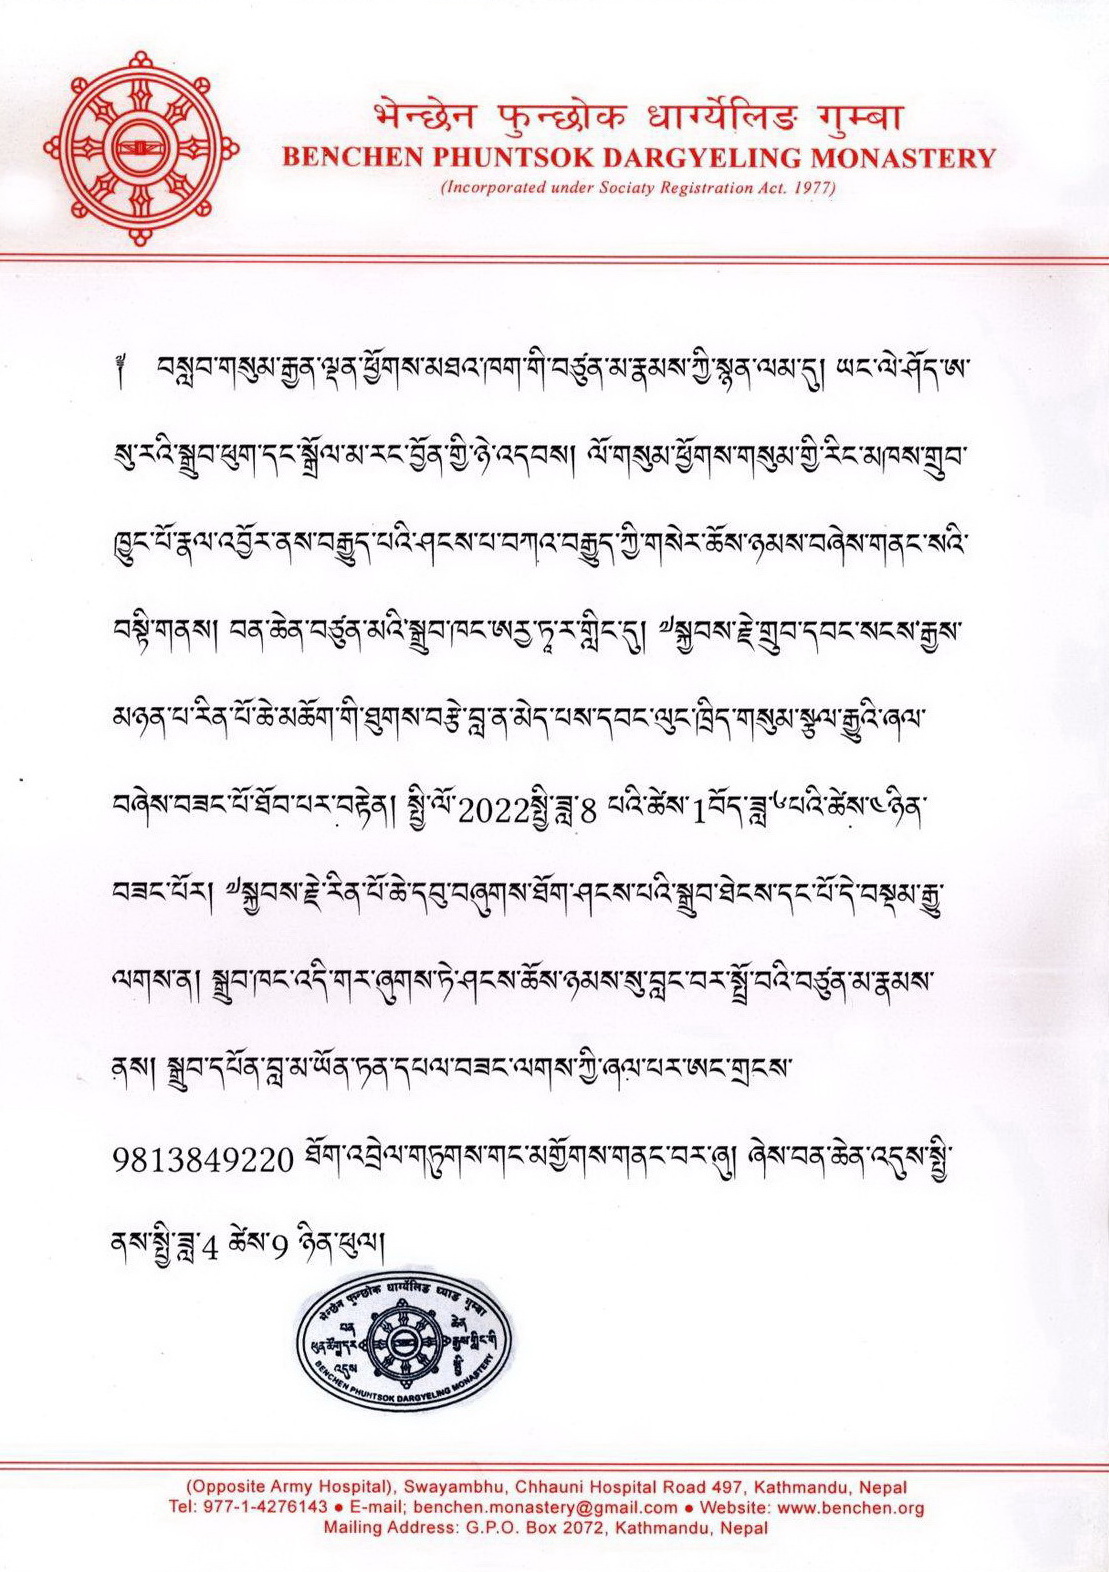 भेन्छेन फुन्छोक धार्ग्येलिङ गुम्बा
BENCHEN PHUNTSOK DARGYELING MONASTERY
(Incorporated under Sociaty Registration Act. 1977)
༈ བསླབ་གསུམ་རྒྱན་ལྡན་ཕྱོགས་མཐའ་ཁག་གི་བཙུན་མ་རྣམས་ཀྱི་སྙན་ལམ་དུ། ཡང་ལེ་ཤོད་ཨ་
སུ་རའི་སྒྲུབ་ཕུག་དང་སྒྲོལ་མ་རང་བྱོན་གྱི་ཉེ་འདབས། ལོ་གསུམ་ཕྱོགས་གསུམ་གྱི་རིང་མཁས་གྲུབ་
ཁྱུང་པོ་རྣལ་འབྱོར་ནས་བརྒྱུད་པའི་ཤངས་པ་བཀའ་བརྒྱུད་ཀྱི་གསེར་ཆོས་ཉམས་བཞེས་གནང་སའི་
བསྟི་གནས། བན་ཆེན་བཙུན་མའི་སྒྲུབ་ཁང་ཨརྱ་ཏཱ་ར་གླིང་དུ། ༧སྐྱབས་རྗེ་གྲུབ་དབང་སངས་རྒྱས་
མཉན་པ་རིན་པོ་ཆེ་མཆོག་གི་ཐུགས་བརྩེ་བླ་ན་མེད་པས་དབང་ལུང་ཁྲིད་གསུམ་སྩལ་རྒྱུའི་ཞལ་
བཞེས་བཟང་པོ་ཐོབ་པར་བརྟེན། སྤྱི་ལོ་2022སྤྱི་ཟླ་8 པའི་ཚེས་1བོད་ཟླ་༦པའི་ཚེས་༤ཉིན་
བཟང་པོར། ༧སྐྱབས་རྗེ་རིན་པོ་ཆེ་དབུ་བཞུགས་ཐོག་ཤངས་པའི་སྒྲུབ་ཐེངས་དང་པོ་དེ་བསྡམ་རྒྱུ་
ལགས་ན། སྒྲུབ་ཁང་འདི་གར་ཞུགས་ཏེ་ཤངས་ཆོས་ཉམས་སུ་བླང་བར་སྤྲོ་བའི་བཙུན་མ་རྣམས་
ནས། སྒྲུབ་དཔོན་བླ་མ་ཡོན་ཏན་དཔལ་བཟང་ལགས་ཀྱི་ཞལ་པར་ཨང་གྲངས་
9813849220 ཐོག་འབྲེལ་གཏུགས་གང་མགྱོགས་གནང་བར་ཞུ། ཞེས་བན་ཆེན་འདུས་སྤྱི་
ནས་སྤྱི་ཟླ་4 ཚེས་9 ཉིན་ཕུལ།
भेन्छेन फुन्छोक धार्ग्येलिङ ध्याङ गुम्बा
བན ཆེན
འདུས སྤྱི
BENCHEN PHUNTSOK DARGYELING MONASTERY
(Opposite Army Hospital), Swayambhu, Chhauni Hospital Road 497, Kathmandu, Nepal
Tel: 977-1-4276143 ● E-mail; benchen.monastery@gmail.com ● Website: www.benchen.org
Mailing Address: G.P.O. Box 2072, Kathmandu, Nepal